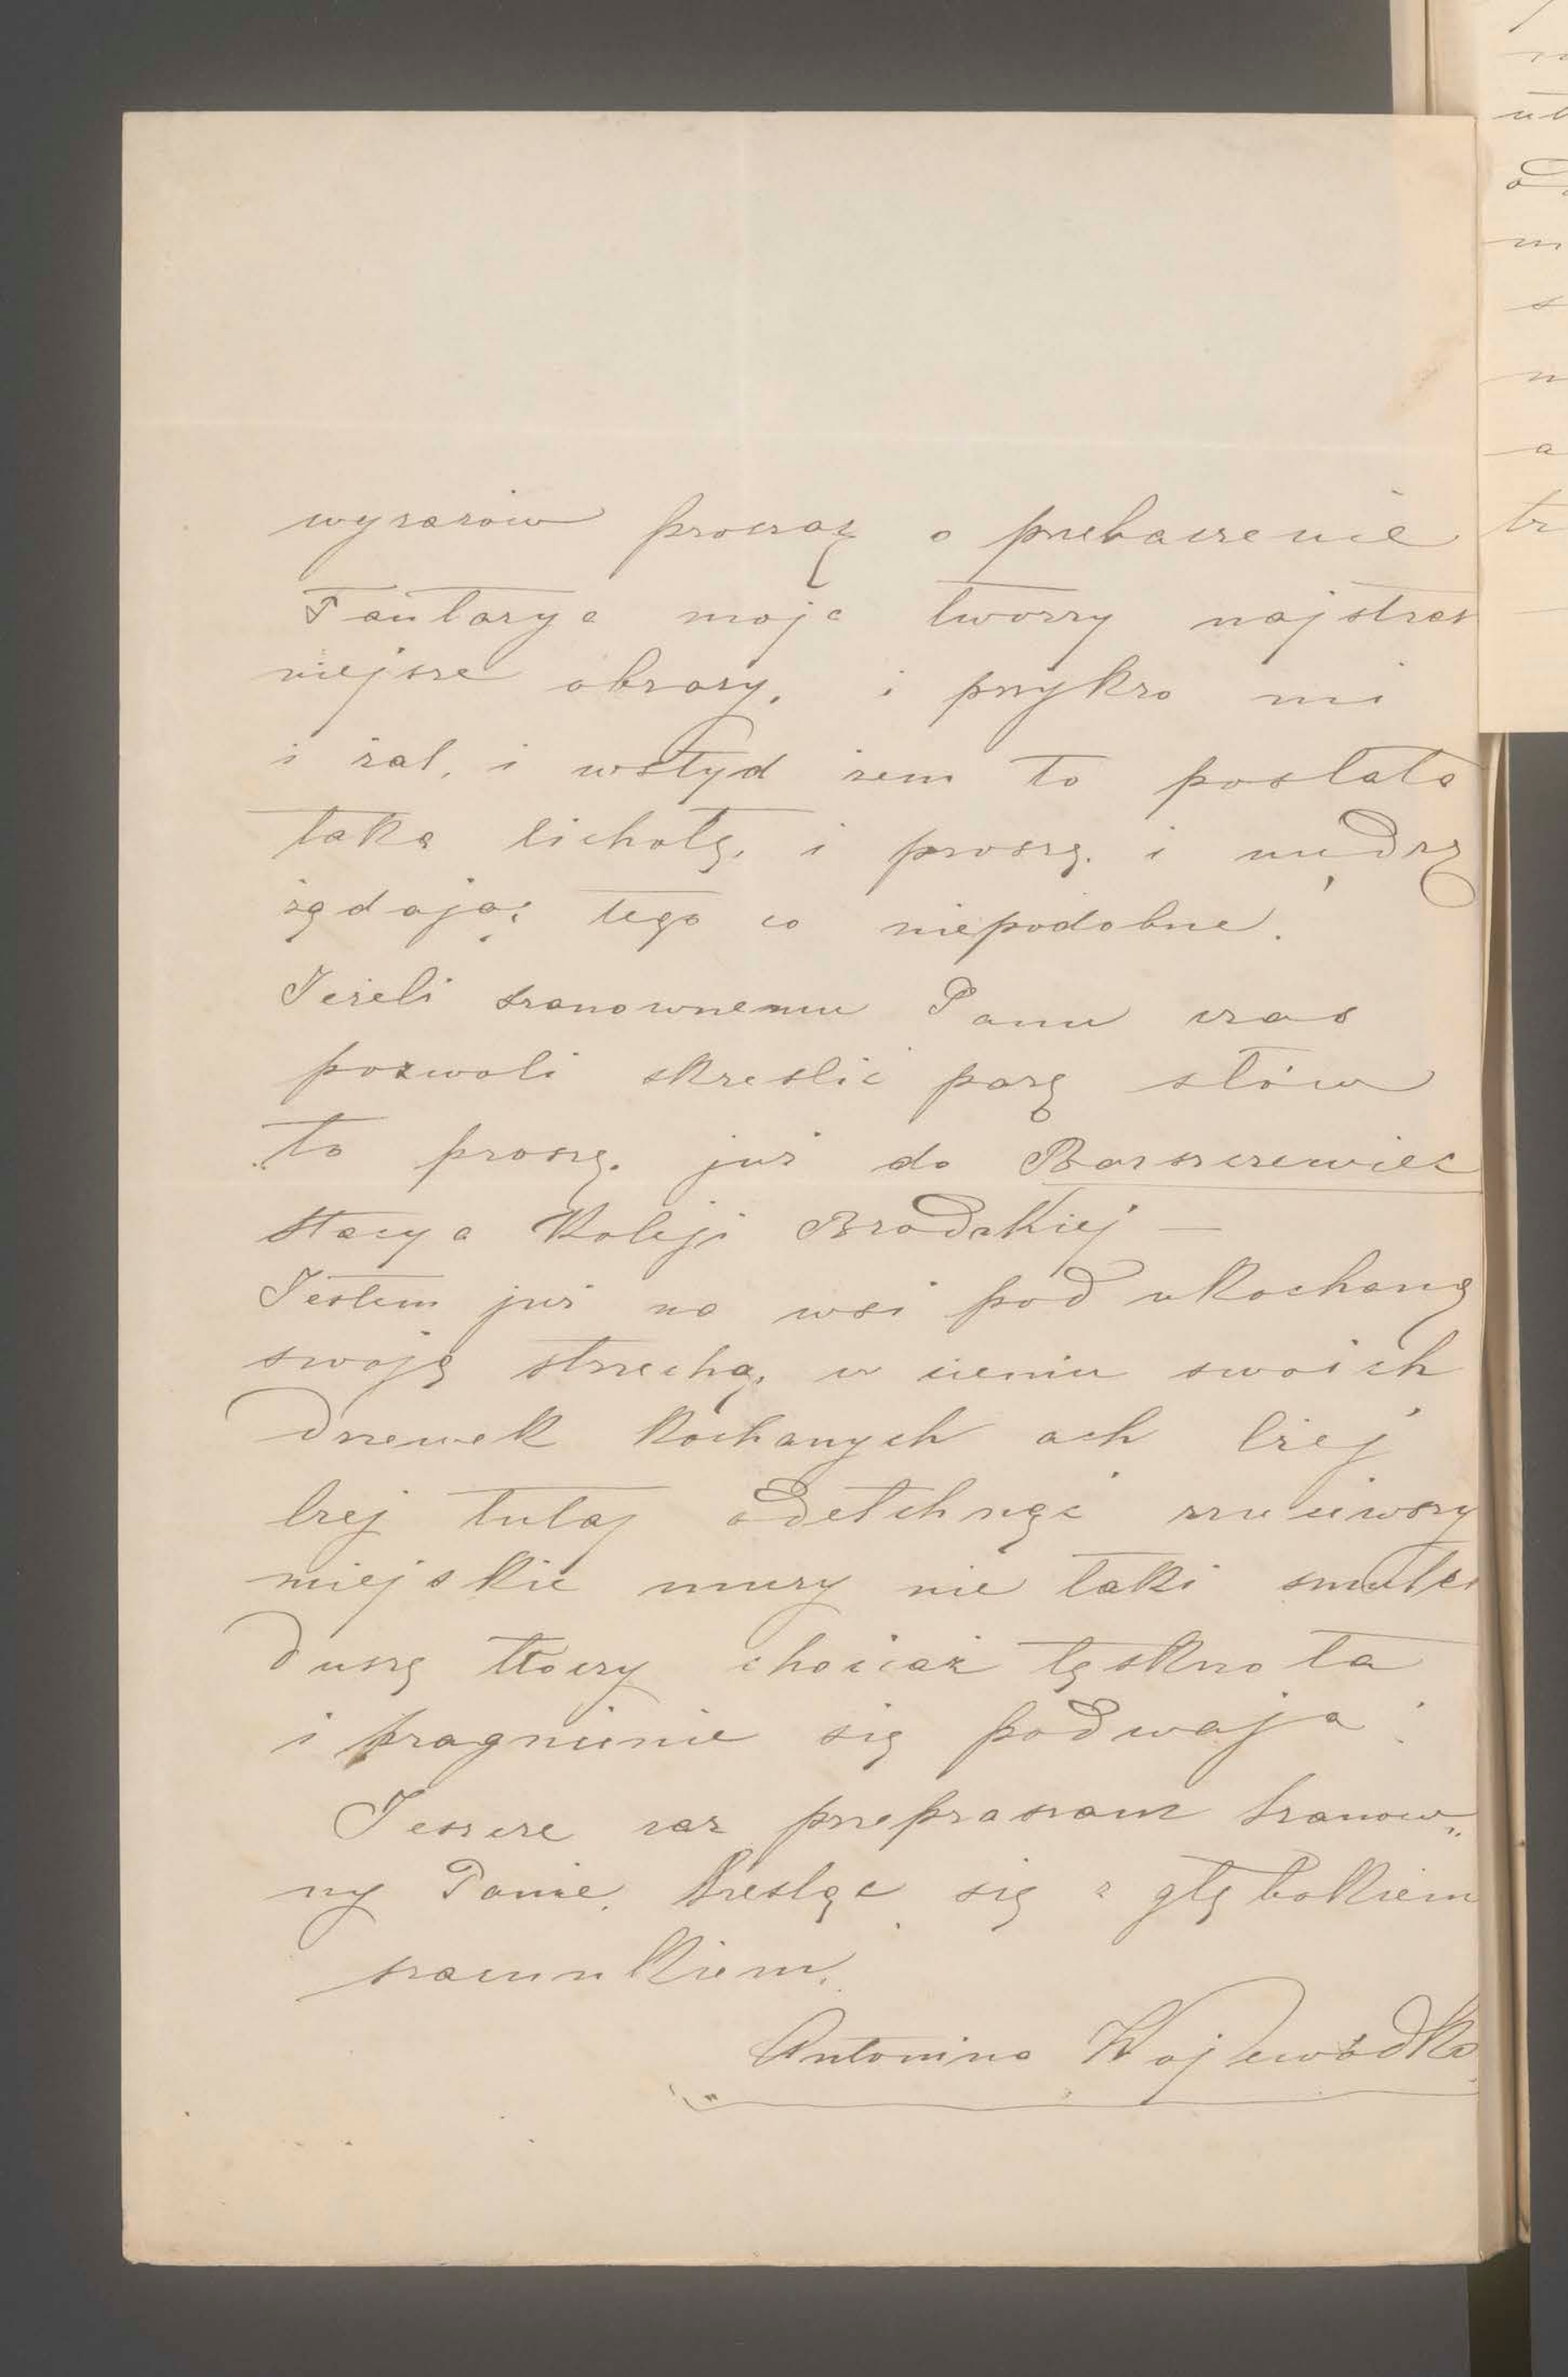 wyrazów prosząc o przebaczenie
Fantazya moja tworzy najstras
niejsze obrazy, i przykro mi
i żal, i wstyd żem to posłała
taką lichotę, i proszę, i nudzę
żądając tego co niepodobne.
Jeżeli szanownemu Panu czas
pozwoli skreślić parę słów
to proszę, już do Barszczewiec
stacya Koleji Brodzkiej —
Jestem już na wsi pod ukochaną
swoją strzechą, w cieniu swoich
drzewek kochanych ach lżej
lżej tutaj odetchnąć rzuciwszy
miejskie mury nie taki smutek
duszę tłoczy chociaż tęsknota
i pragnienie się podwaja.
Jeszcze raz przepraszam Szanow„
ny Panie, kreśląc się z głębokiem
szacunkiem.
Antonina Wojewódka